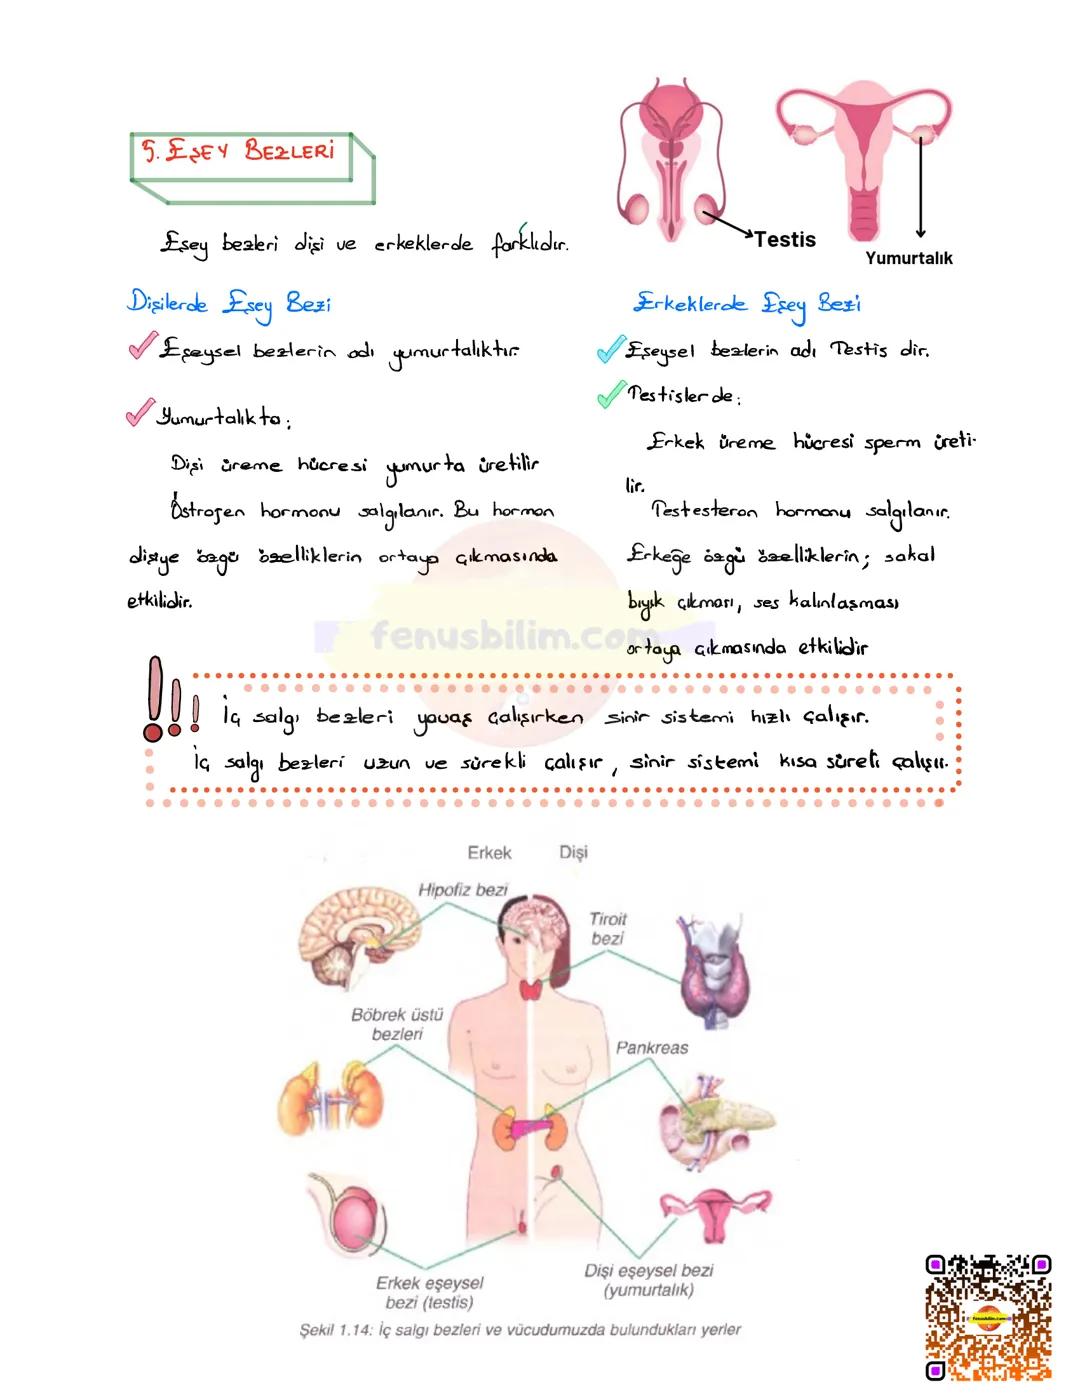 5. EŞEY BEZLERİ
Testis
Yumurtalık
Eşey bezleri dişi ve erkeklerde farklıdır.
Dişilerde Eşey Bezi
Eşeysel bezlerin adı yumurtalıktır.
Yumurtalıkta;
Dişi üreme hücresi yumurta üretilir
Östrojen hormonu salgılanır. Bu hormon
dişiye özgü özelliklerin ortaya çıkmasında
etkilidir.
Erkeklerde Eşey Bezi
Eşeysel bezlerin adı Testis dir.
Testislerde;
Erkek üreme hücresi sperm üreti-
lir.
Testesteron hormonu salgılanır.
Erkeğe özgü özelliklerin; sakal
bıyık çıkması, ses kalınlaşması
ortaya çıkmasında etkilidir
fenusbilim.com
!!!
İç salgı bezleri yavaş çalışırken sinir sistemi hızlı çalışır.
İç salgı bezleri uzun ve sürekli çalışır, sinir sistemi kısa süreli çalışır.
Erkek Dişi
Hipofiz bezi
Tiroit
bezi
Böbrek üstü
bezleri
Pankreas
Erkek eşeysel
bezi (testis)
Dişi eşeysel bezi
(yumurtalık)
Şekil 1.14: İç salgı bezleri ve vücudumuzda bulundukları yerler
fenusbilim.com